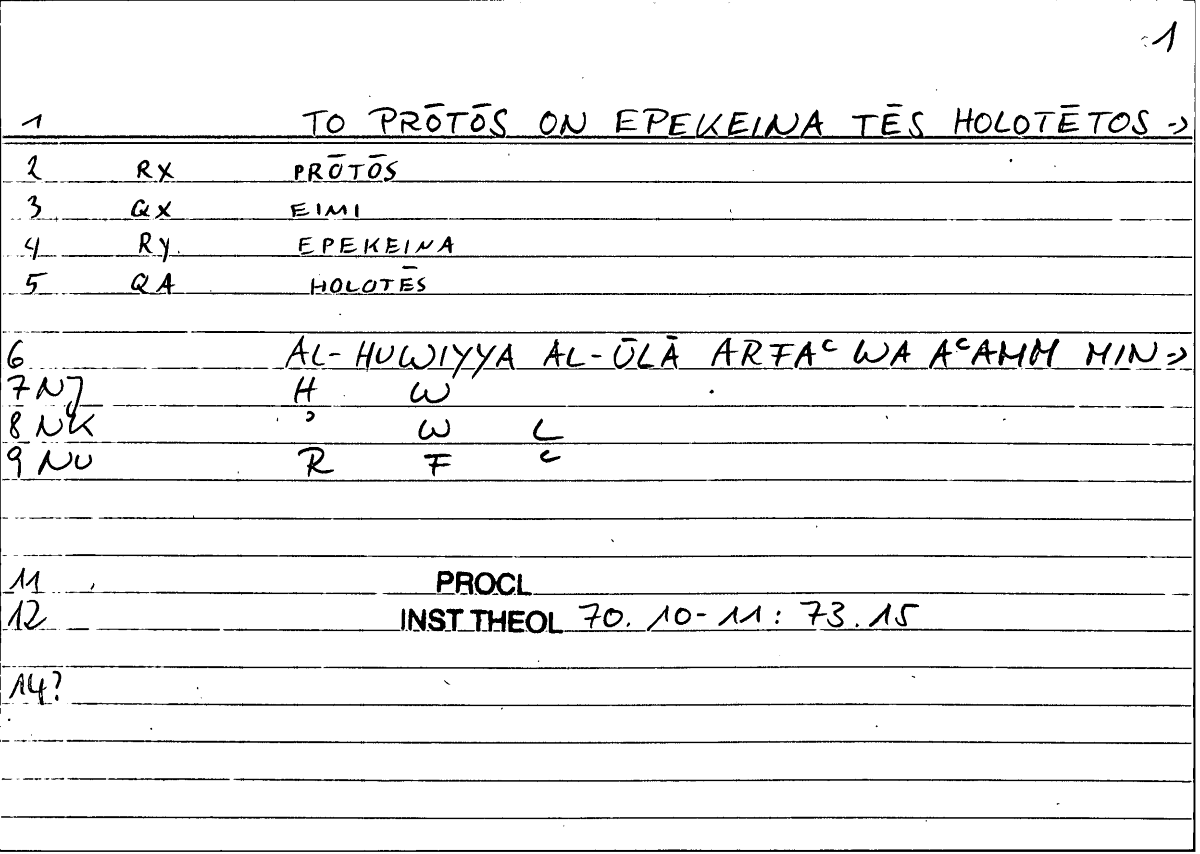 1
1 TO PRŌTŌS ON EPEKEINA TĒS HOLOTĒTOS ->
2 RX PRŌTŌS
3 QX EIMI
4 Ry EPEKEINA
5 QA HOLOTĒS
6 AL-HUWIYYA AL-ŪLĀ ARFAʿ WA AʿAMM MIN ->
7 NJ H W
8 NK ʾ W L
9 NU R F ʿ
11 PROCL
12 INST THEOL 70. 10-11: 73. 15
14?